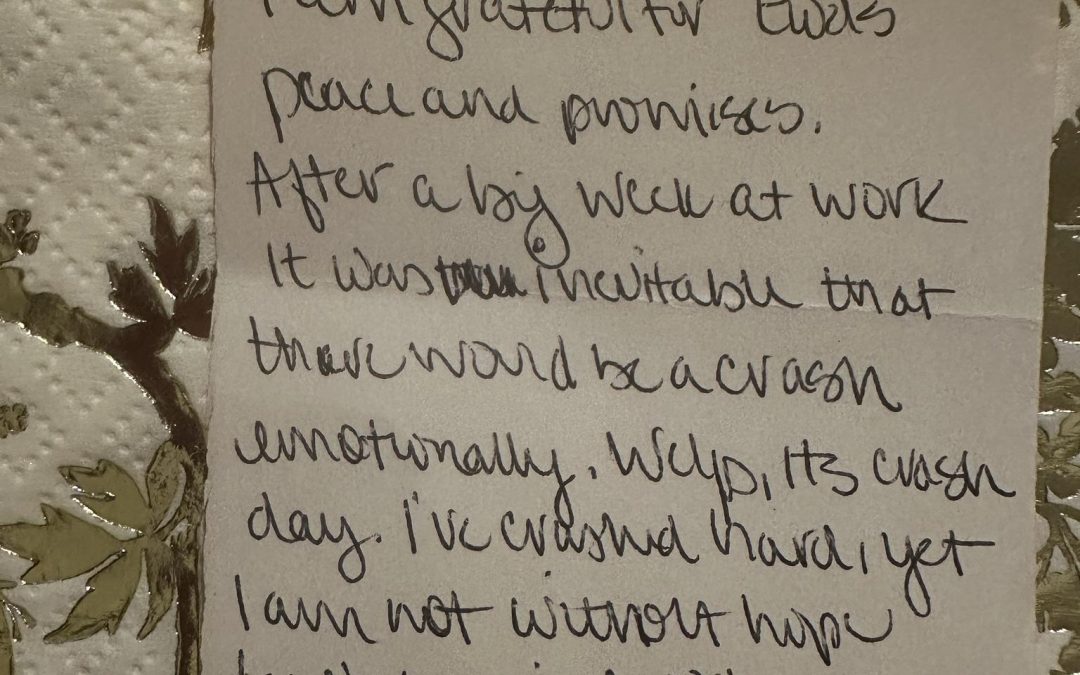 I am grateful for
peace and promises.
After a big week at work
It was inevitable that
there would be a crash
emotionally. Welp, its crash
day. I've crashed hard, yet
I am not without hope